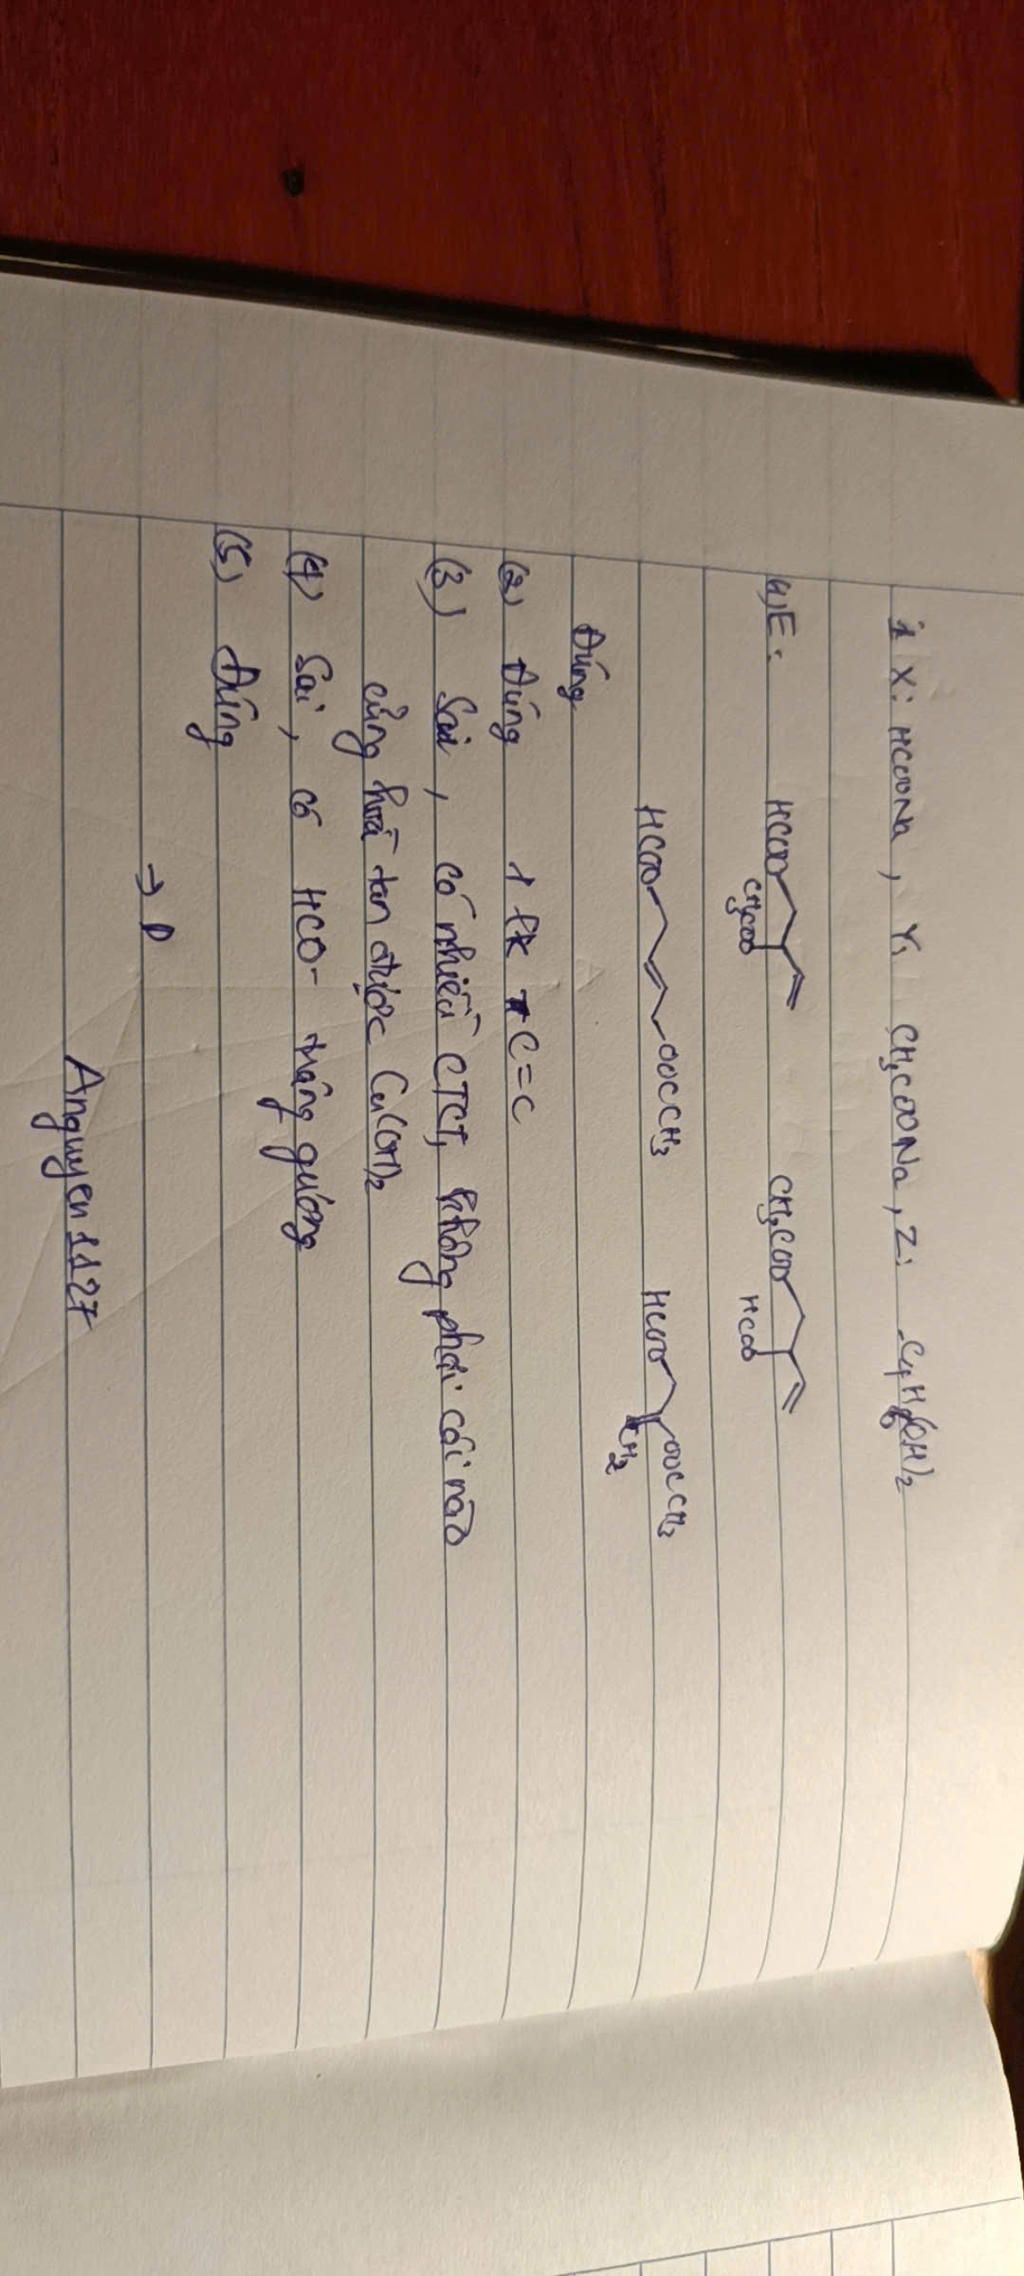 1 X: HCOONa, Y: CH3COONa, Z: C4H6(OH)2
(1) E: HCOO CH3COO CH3COO HCOO
HCOO OOCCH3 HCOO OOCCH3 CH2
Đúng
(2) Đúng 1 lk π C=C
(3) Sai, có nhiều CTCT, không phải cái nào
cũng hoà tan được Cu(OH)2
(4) Sai, có HCO- tráng gương
(5) Đúng
→ D
Anguyen1127